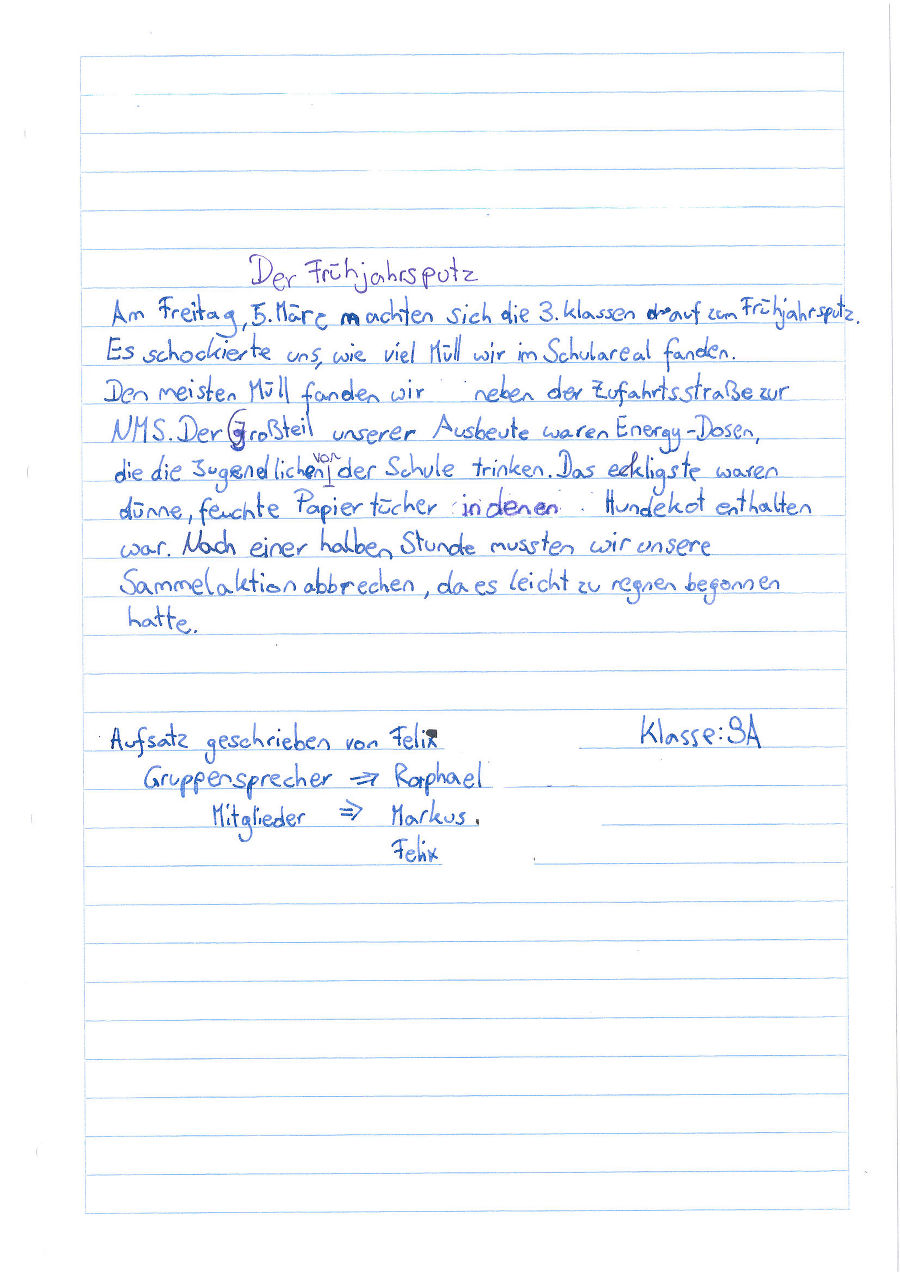 Der Frühjahrsputz
Am Freitag, 5. März machten sich die 3. Klassen drauf zum Frühjahrsputz.
Es schockierte uns, wie viel Müll wir im Schulareal fanden.
Den meisten Müll fanden wir neben der Zufahrtsstraße zur
NMS. Der Großteil unserer Ausbeute waren Energy-Dosen,
die die Jugendlichen vor der Schule trinken. Das eckligste waren
dünne, feuchte Papiertücher in denen Hundekot enthalten
war. Nach einer halben Stunde mussten wir unsere
Sammelaktion abbrechen, da es leicht zu regnen begonnen
hatte.
Aufsatz geschrieben von Felix Klasse: 3A
Gruppensprecher => Raphael
Mitglieder => Markus.
Felix